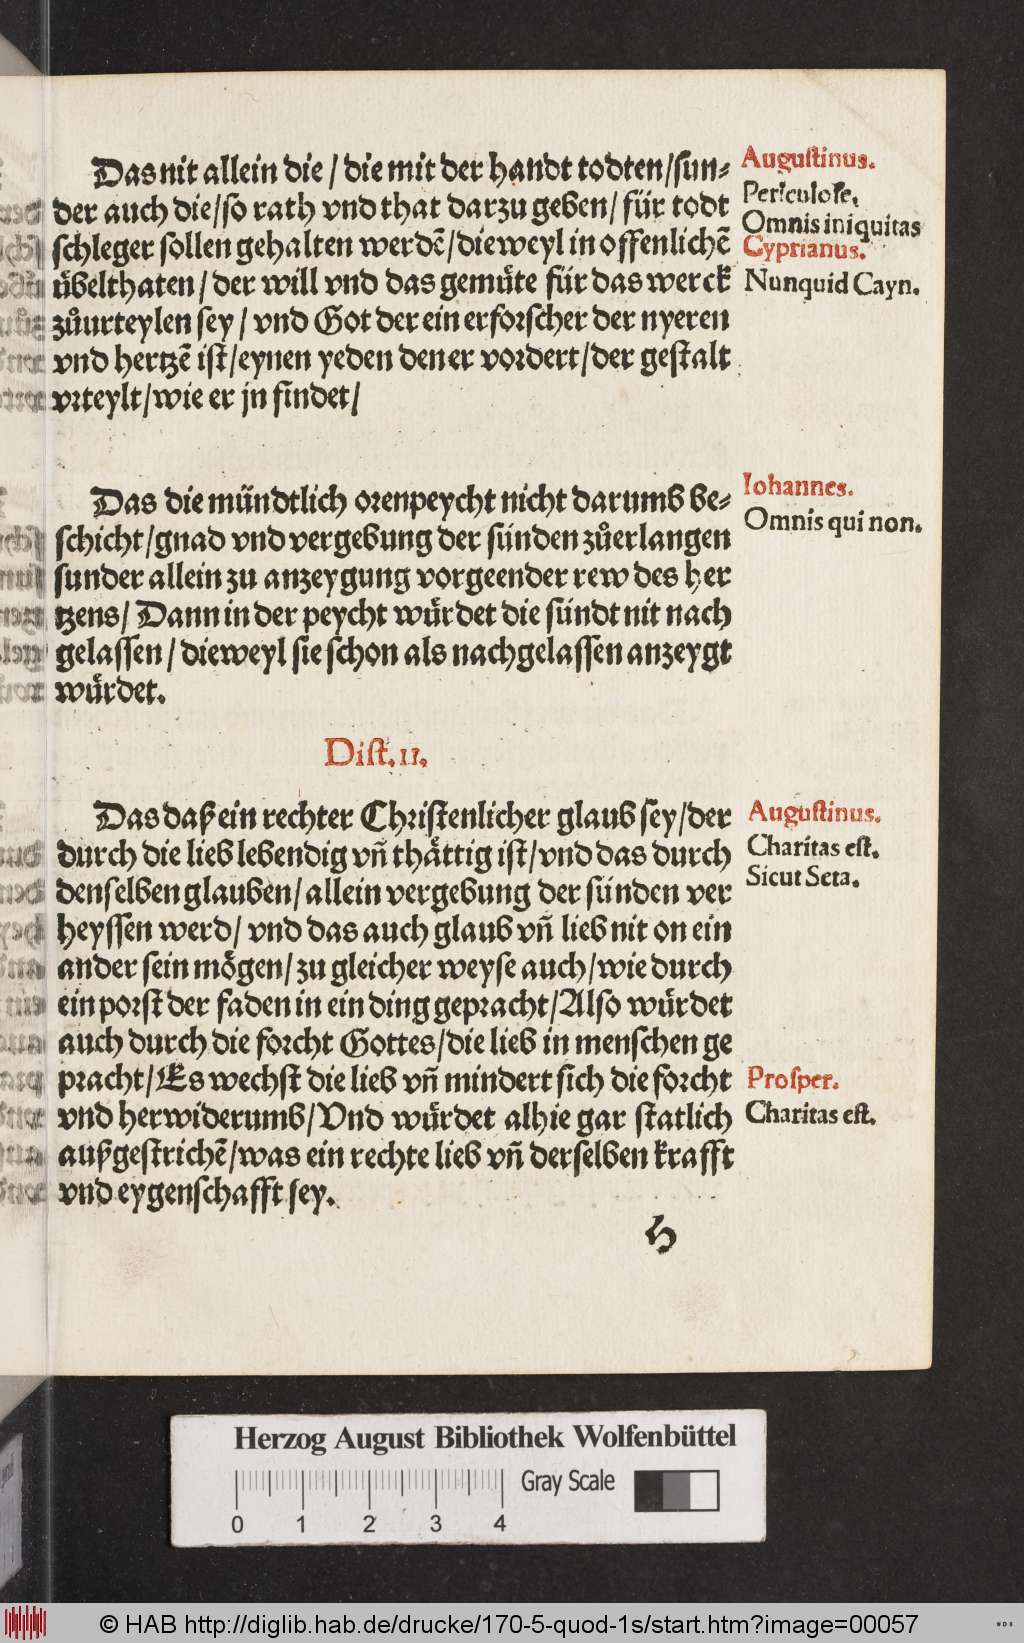 Das nit allein die / die mit der handt todten/sun⸗
der auch die/so rath vnd that darzu geben/ für todt
schleger sollen gehalten werdē/dieweyl in offenlichē
übelthaten/der will vnd das gemüte für das werck
zůurteylen sey / vnd Got der ein erforscher der nyeren
vnd hertzē ist/eynen yeden den er vordert/der gestalt
vrteylt/wie er jn findet/
Augustinus.
Periculose.
Omnis iniquitas
Cyprianus.
Nunquid Cayn.
Das die mündtlich orenpeycht nicht darumb be⸗
schicht/gnad vnd vergebung der sünden zůerlangen
sunder allein zu anzeygung vorgeender rew des her
tzens/ Dann in der peycht würdet die sündt nit nach
gelassen / dieweyl sie schon als nachgelassen anzeygt
würdet.
Iohannes.
Omnis qui non.
Dist. 11.
Das daß ein rechter Christenlicher glaub sey/der
durch die lieb lebendig vn̄ thättig ist/vnd das durch
denselben glauben/ allein vergebung der sünden ver
heyssen werd/ vnd das auch glaub vn̄ lieb nit on ein
ander sein mögen/zu gleicher weyse auch/wie durch
ein porst der faden in ein ding gepracht/Also würdet
auch durch die forcht Gottes/die lieb in menschen ge
pracht/Es wechst die lieb vn̄ mindert sich die forcht
vnd herwiderumb/Vnd würdet alhie gar statlich
außgestrichē/was ein rechte lieb vn̄ derselben krafft
vnd eygenschafft sey.
Augustinus.
Charitas est.
Sicut Seta.
Prosper.
Charitas est.
H
Herzog August Bibliothek Wolfenbüttel
0 1 2 3 4 Gray Scale
© HAB http://diglib.hab.de/drucke/170-5-quod-1s/start.htm?image=00057